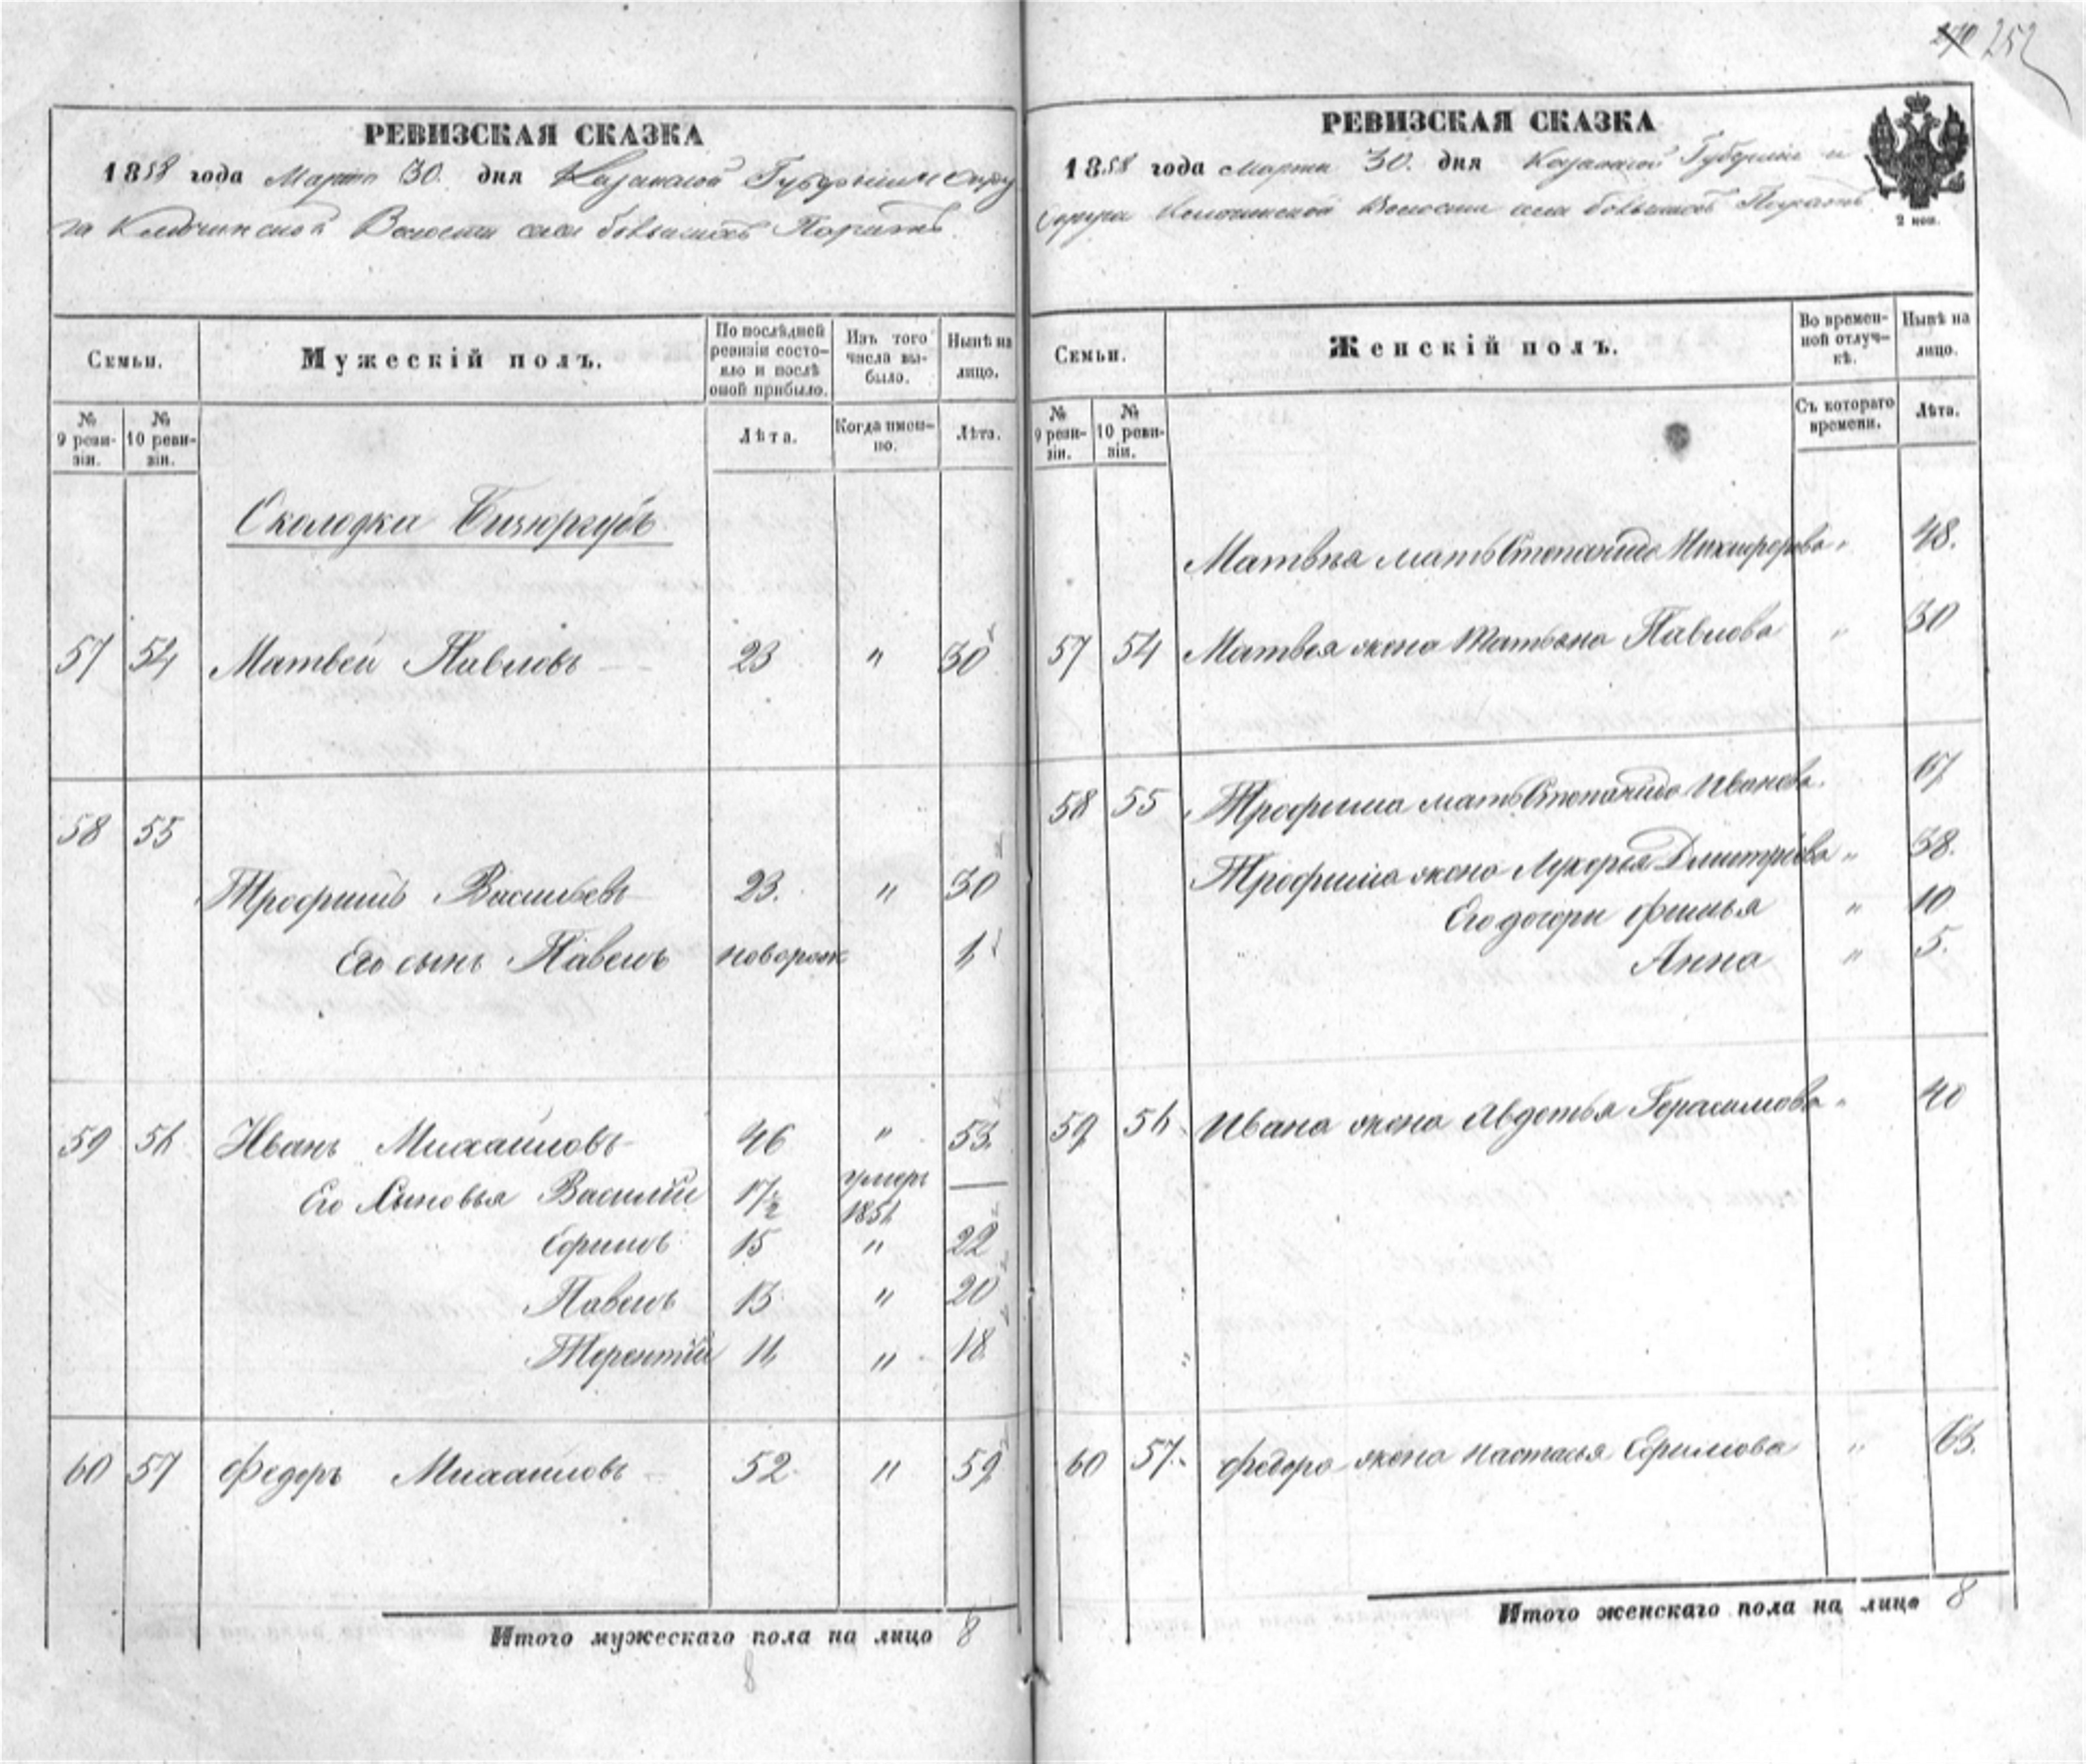 252
РЕВИЗСКАЯ СКАЗКА
1858 года Марта 30. дня Казанской Губерніи и Окру
га Ключинской Волости села
Семьи.
Мужескій полъ.
По послѣдней ревизіи состояло и послѣ оной прибыло.
Изъ того числа выбыло.
Нынѣ на лицо.
№ 9 ревизіи.
№ 10 ревизіи.
Лѣта.
Когда именно.
Лѣта.
Околодка
57 54 Матвей Павловъ 23 " 30
58 55
Трофимъ Васильевъ 23. " 30
Его сынъ Павелъ новорож 1
59 56 Иванъ Михайловъ 46 " 53.
Его Сыновья Василій 17½ умеръ 1851 —
Ефимъ 15 " 22
Павелъ 13 " 20
Терентій 11 " 18
60 57 Федоръ Михайловъ 52 " 59
Итого мужескаго пола на лицо 8
8
РЕВИЗСКАЯ СКАЗКА
1858 года Марта 30. дня Казанской Губерніи и
Округа Ключинской Волости села
2 коп.
Семьи.
Женскій полъ.
Во временной отлучкѣ.
Нынѣ на лицо.
№ 9 ревизіи.
№ 10 ревизіи.
Съ котораго времени.
Лѣта.
Матвѣя мать Степанида Никифорова " 48.
57 54 Матвея жена Татьяна Павлова " 30
58 55 Трофима мать Степанида Иванова. 67
Трофима жена Лукерья Дмитріева " 38.
Его дочери " 10
Анна " 5.
59 56 Ивана жена Авдотья Герасимова " 40
60 57 Федора жена Настасья Ефимова " 63.
Итого женскаго пола на лицо 8